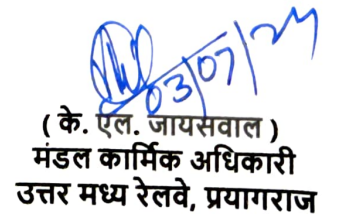 03/07/24
( के. एल. जायसवाल )
मंडल कार्मिक अधिकारी
उत्तर मध्य रेलवे, प्रयागराज